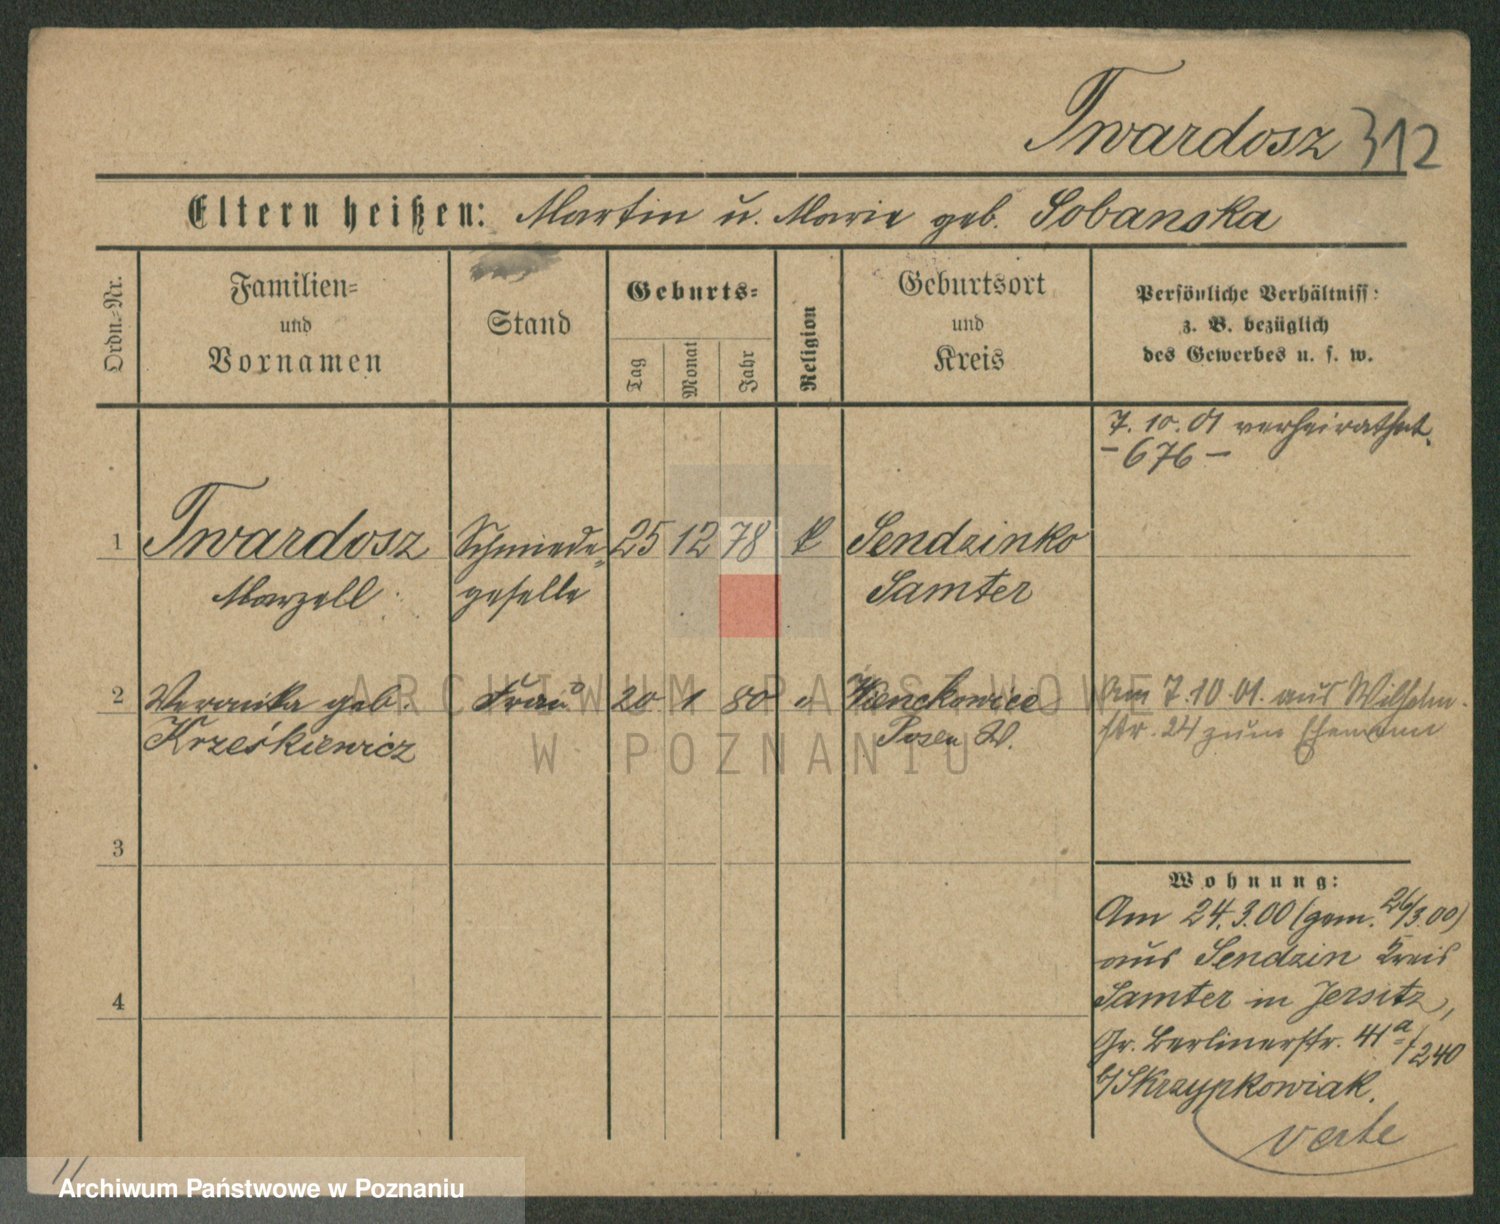 Twardosz 312
Eltern heißen: Martin u. Marie geb. Sobanska
Ordn.-Nr.
Familien-
und
Vornamen
Stand
Geburts-
Tag
Monat
Jahr
Religion
Geburtsort
und
Kreis
Persönliche Verhältniss:
z. B. bezüglich
des Gewerbes u. s. w.
7. 10. 01 verheirathet.
- 676 -
1 Twardosz Schmiede- 25 12 78 k Sendzinko
Marzell geselle Samter
2 Veronika geb. Frau 20 1 80 " Wienckowice Am 7.10.01. aus Wilhelm-
Krześkiewicz Posen W. str. 24 zum Ehemann
3
Wohnung:
Am 24.3.00 (gem. 26/3.00)
aus Sendzin Kreis
4
Samter in Jersitz,
Gr. Berlinerstr. 41a/240
b/Skrzypkowiak.
verte
11
ARCHIWUM PAŃSTWOWE
W POZNANIU
Archiwum Państwowe w Poznaniu